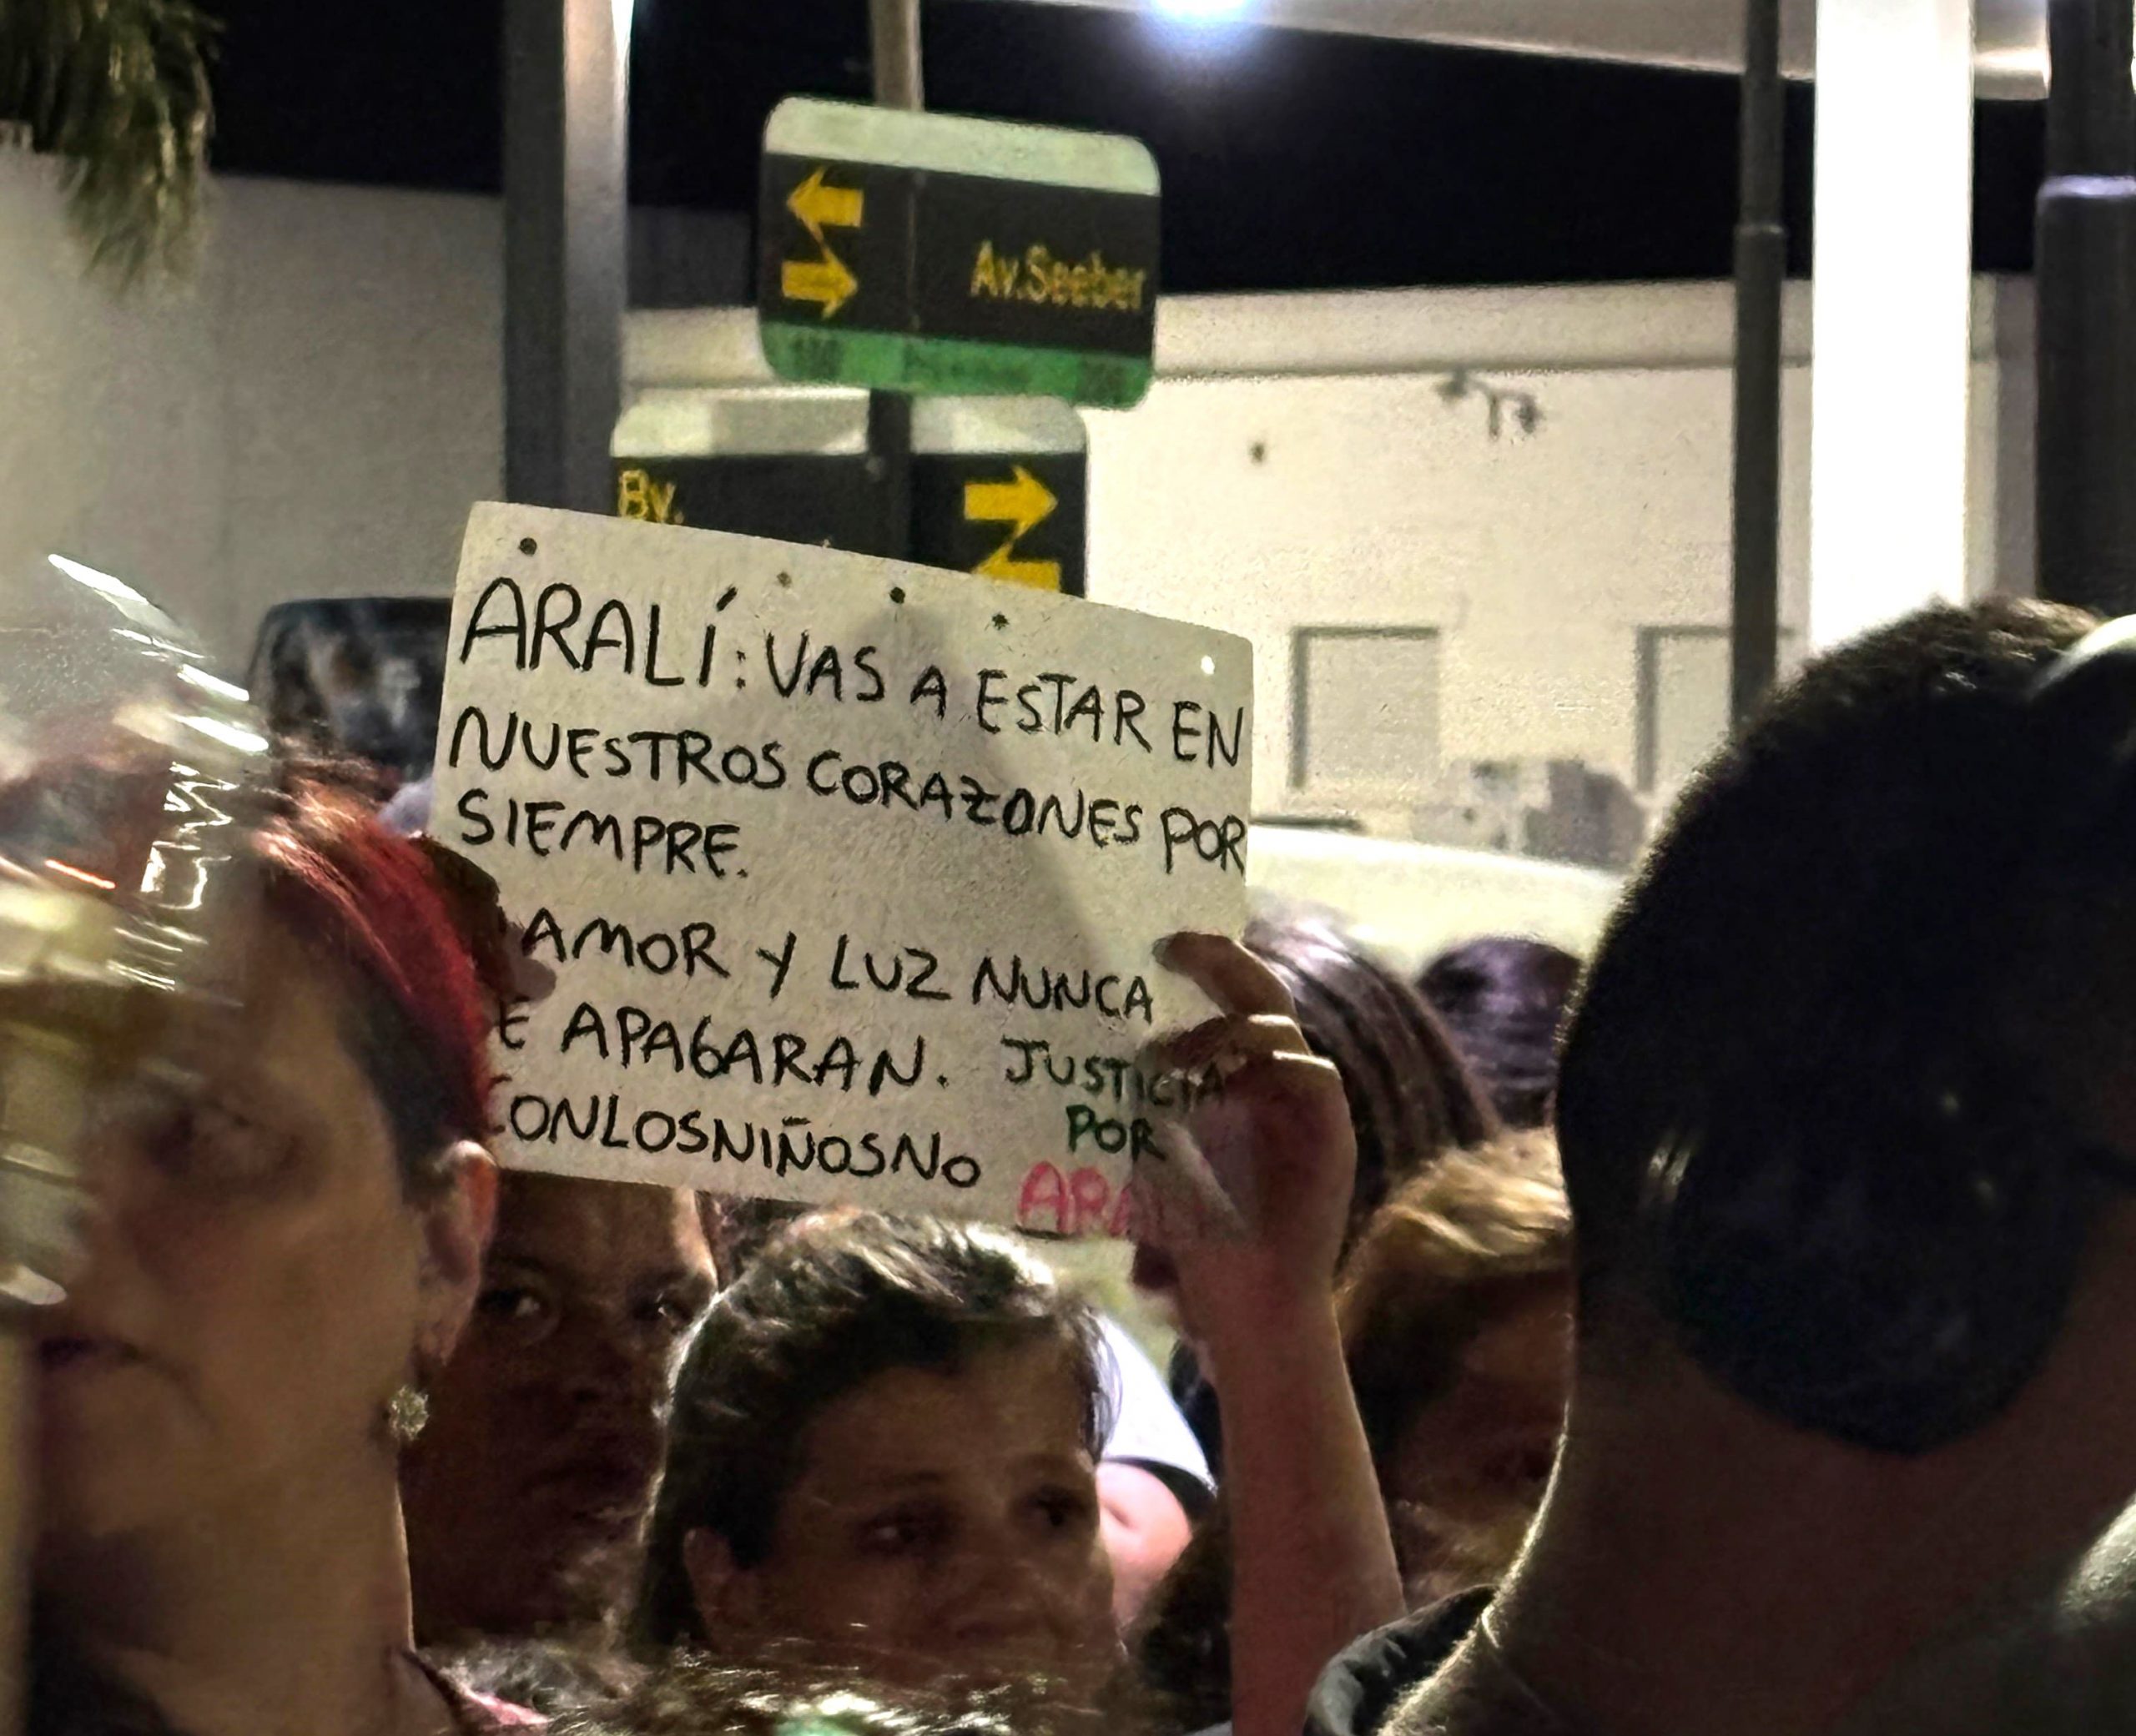 Av.Seeber
Bv.
ARALÍ: VAS A ESTAR EN
NUESTROS CORAZONES POR
SIEMPRE.
AMOR Y LUZ NUNCA
E APAGARAN. JUSTICIA
CONLOSNIÑOSNO POR
ARALÍ